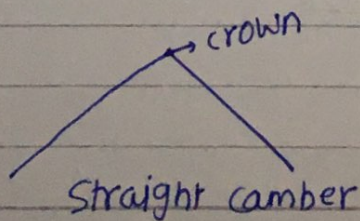 crown
Straight camber